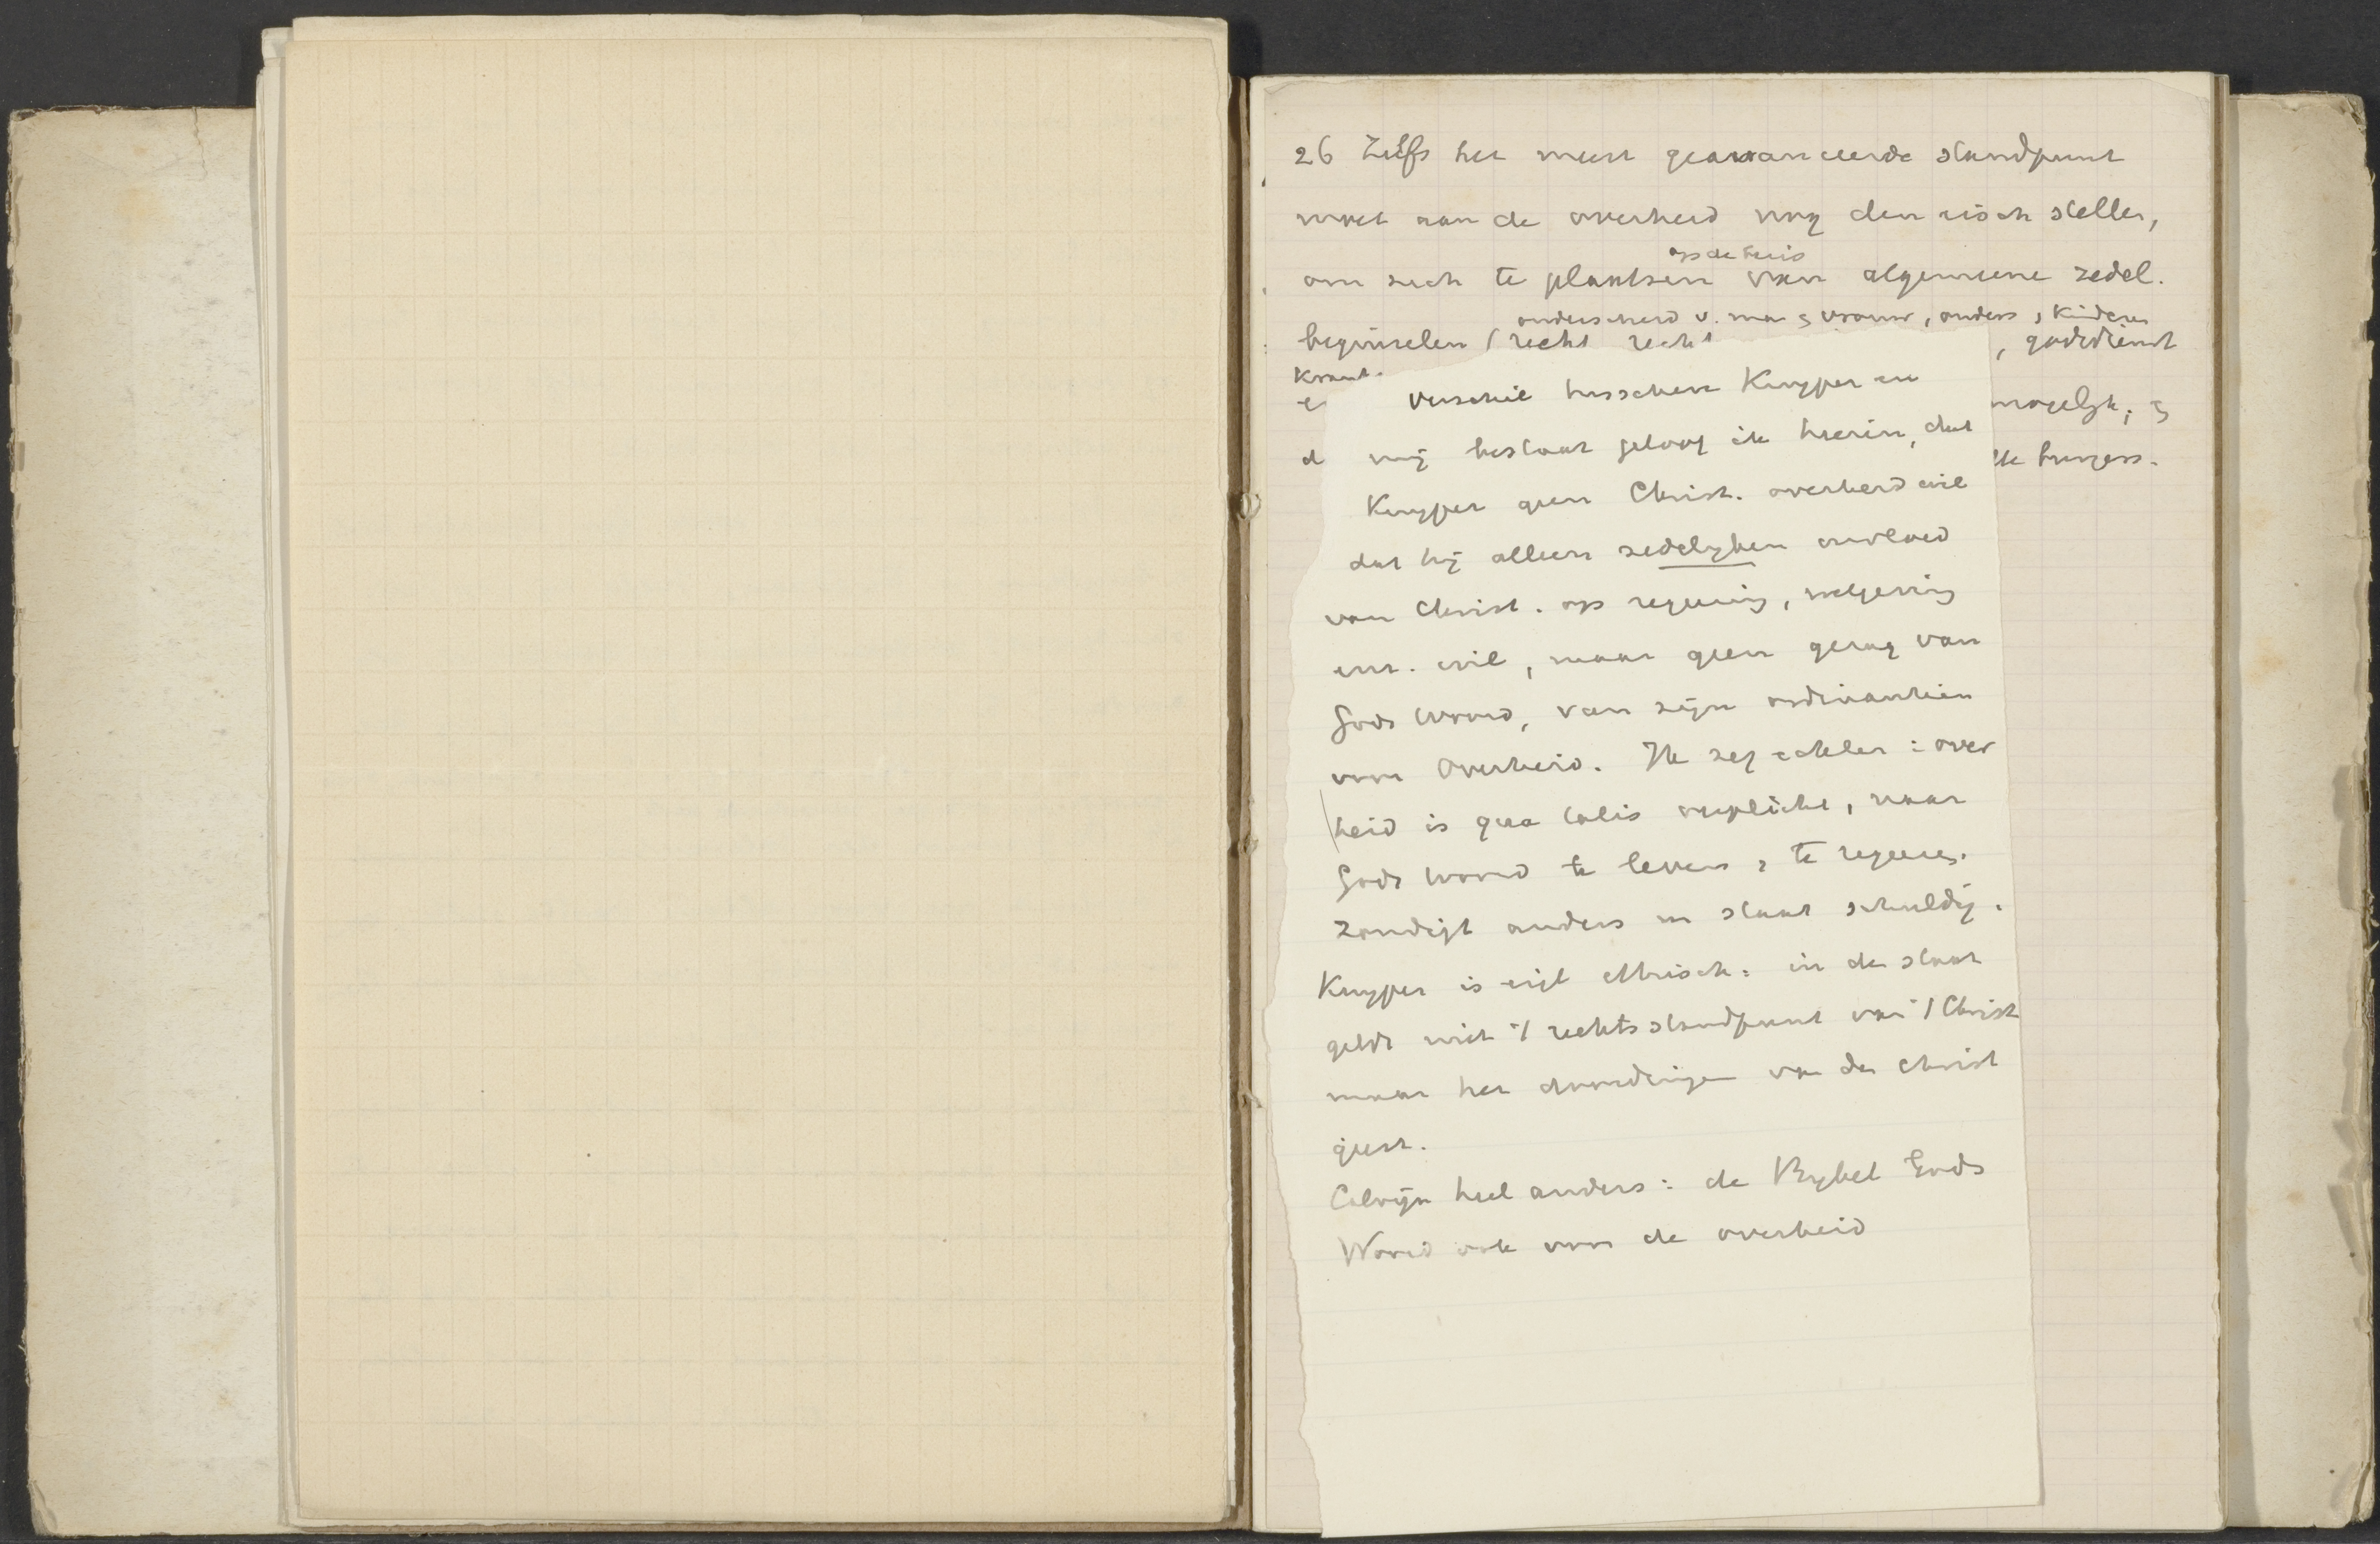 26 Zelfs het meest geavanceerde standpunt
moet aan de overheid nog den eisch stellen,
op de basis
om zich te plaatsen van algemeene zedel.
onderscheid v. man & vrouw, ouders & kinderen
beginselen ( recht recht , godsdienst
mogelijk; &
d burgers.
Verschil tusschen Kuyper en
mij bestaat geloof ik hierin, dat
Kuyper geen Christ. overheid wil
dat hij alleen zedelyken invloed
van Christ. op regeering, wetgeving
enz. wil, maar geen gezag van
Gods Woord, van zijn ordinantiën
voor Overheid. Ik zeg echter: over
heid is qua talis verplicht, naar
Gods Woord te leven & te regeeren.
Zondigt anders en staat schuldig.
Kuyper is eigl ethisch: in de staat
geldt niet 't rechtsstandpunt van 't Christ
maar het doordringen van den christ
geest.
Calvijn heel anders: de Bybel Gods
Woord ook voor de overheid